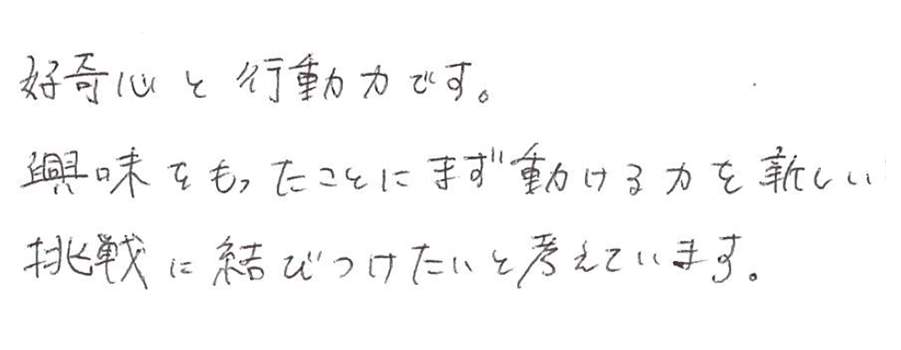 好奇心と行動力です。
興味をもったことにまず動ける力を新しい
挑戦に結びつけたいと考えています。